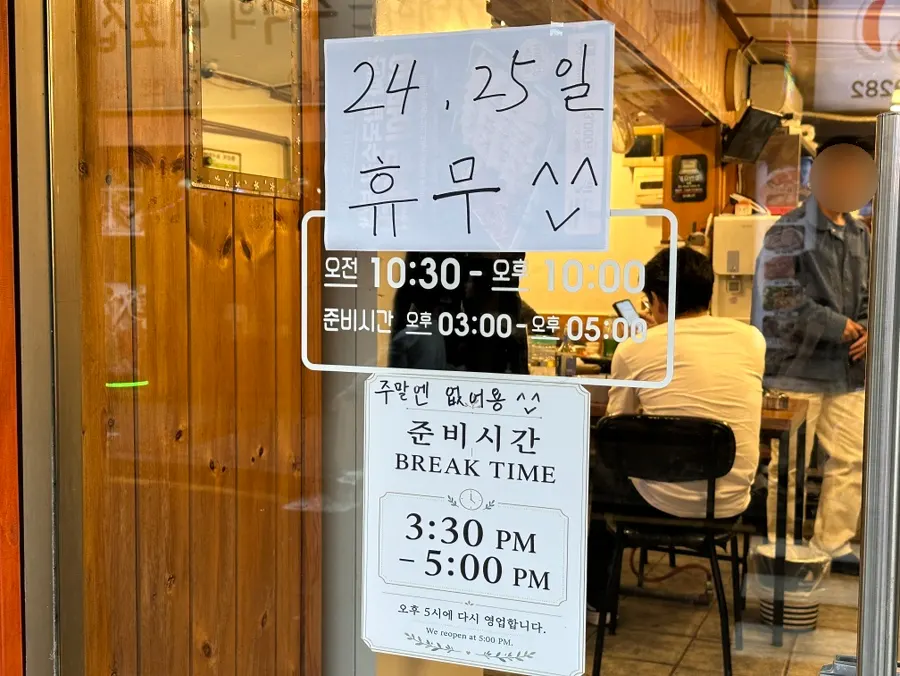 24, 25일
휴무 ^^
오전 10:30 - 오후 10:00
준비시간 오후 03:00 - 오후 05:00
주말엔 없어용 ^^
준비시간
BREAK TIME
3:30 PM
- 5:00 PM
오후 5시에 다시 영업합니다.
We reopen at 5:00 PM.